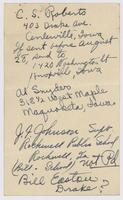 C. S. Roberts
403 Drake Ave.
Centerville, Iowa
If sent before August
25, send to
1420 Washington St
Knoxville, Iowa
Al Snyder
318½ West Maple
Maquoketa Iowa
J. F. Johnson Supt.
Rockwell Public School
Rockwell, Ia
(Bill - School) Not Pd
Bill Easter
Drake?